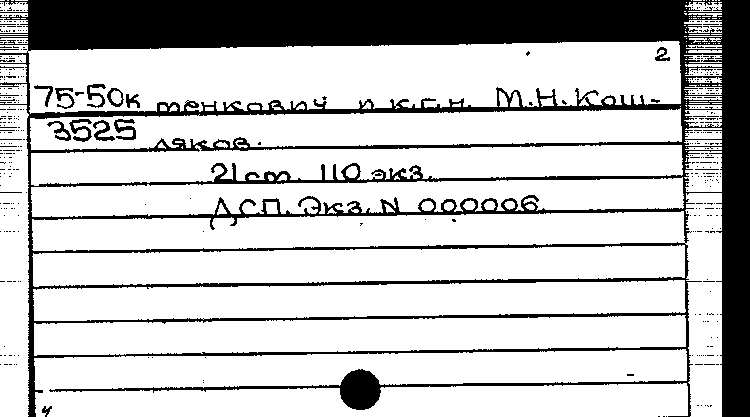 2
75-50к тенкович и к.г.н. М.Н. Кош-
3525 ляков.
21 ст. 110 экз.
ДСП. Экз. N 000006